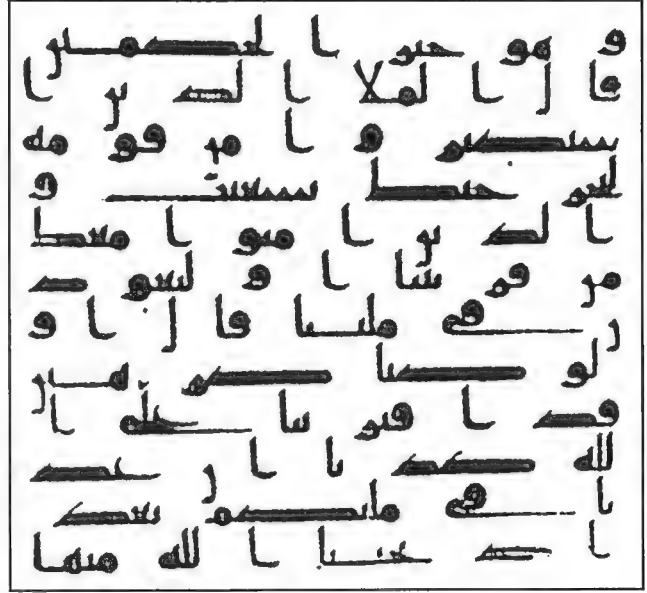 وهو خير الحكمين
قال الملا الذين ا
ستكبروا من قومه
لنخرجنك يشعيب و
الذين امنوا معك
من قريتنا او لتعود
ن في ملتنا قال ا و
لو كنا كرهين
قد افترينا على ا
لله كذبا ان عد
نا في ملتكم بعد
اذ نجينا الله منها